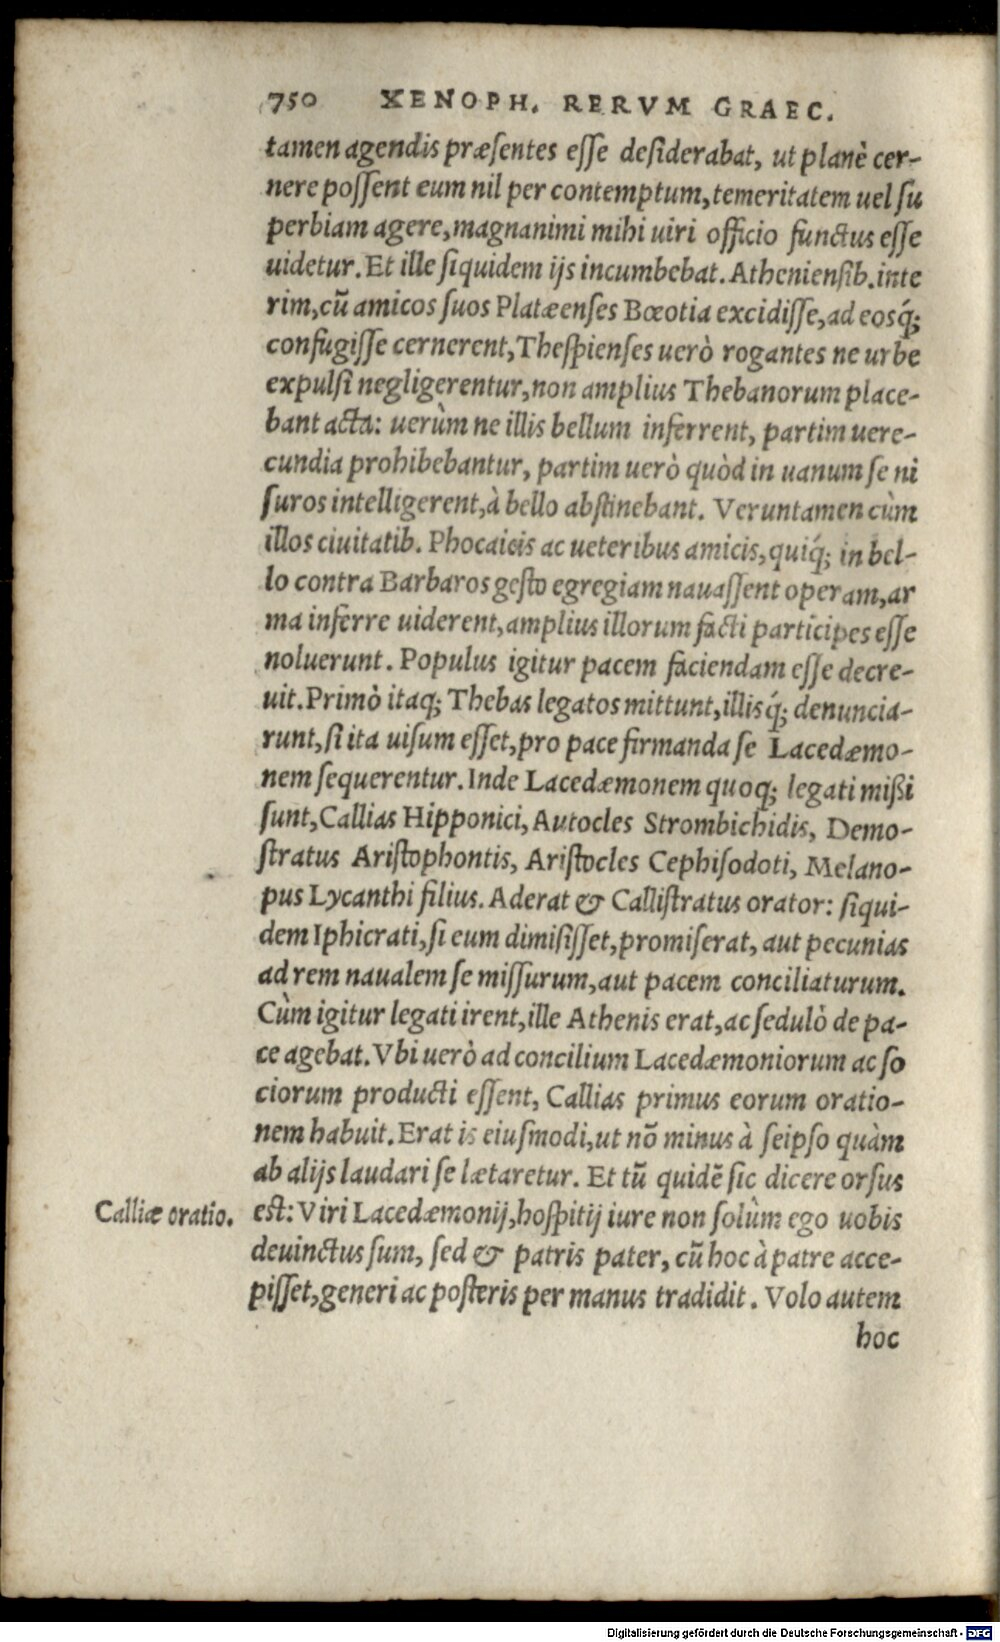 750 XENOPH. RERVM GRAEC.
tamen agendis præſentes eſſe deſiderabat, ut planè cer-
nere poſſent eum nil per contemptum, temeritatem uel ſu
perbiam agere, magnanimi mihi uiri officio functus eſſe
uidetur. Et ille ſiquidem ijs incumbebat. Athenienſib. inte
rim, cũ amicos ſuos Platæenſes Bœotia excidiſſe, ad eosq́;
confugiſſe cernerent, Theſpienſes uerò rogantes ne urbe
expulſi negligerentur, non amplius Thebanorum place-
bant acta: uerùm ne illis bellum inferrent, partim uere-
cundia prohibebantur, partim uerò quòd in uanum ſe ni
ſuros intelligerent, à bello abſtinebant. Veruntamen cùm
illos ciuitatib. Phocaicis ac ueteribus amicis, quiq́; in bel-
lo contra Barbaros geſto egregiam nauaſſent operam, ar
ma inferre uiderent, amplius illorum facti participes eſſe
noluerunt. Populus igitur pacem faciendam eſſe decre-
uit. Primò itaq; Thebas legatos mittunt, illisq́; denuncia-
runt, ſi ita uiſum eſſet, pro pace firmanda ſe Lacedæmo-
nem ſequerentur. Inde Lacedæmonem quoq; legati mißi
ſunt, Callias Hipponici, Autocles Strombichidis, Demo-
ſtratus Ariſtophontis, Ariſtocles Cephiſodoti, Melano-
pus Lycanthi filius. Aderat & Calliſtratus orator: ſiqui-
dem Iphicrati, ſi eum dimiſiſſet, promiſerat, aut pecunias
ad rem naualem ſe miſſurum, aut pacem conciliaturum.
Cùm igitur legati irent, ille Athenis erat, ac ſedulò de pa-
ce agebat. Vbi uerò ad concilium Lacedæmoniorum ac ſo
ciorum producti eſſent, Callias primus eorum oratio-
nem habuit. Erat is eiuſmodi, ut nõ minus à ſeipſo quàm
ab alijs laudari ſe lætaretur. Et tũ quidẽ ſic dicere orſus
Calliæ oratio. eſt: Viri Lacedæmonij, hoſpitij iure non ſolùm ego uobis
deuinctus ſum, ſed & patris pater, cũ hoc à patre acce-
piſſet, generi ac poſteris per manus tradidit. Volo autem
hoc
Digitalisierung gefördert durch die Deutsche Forschungsgemeinschaft - DFG